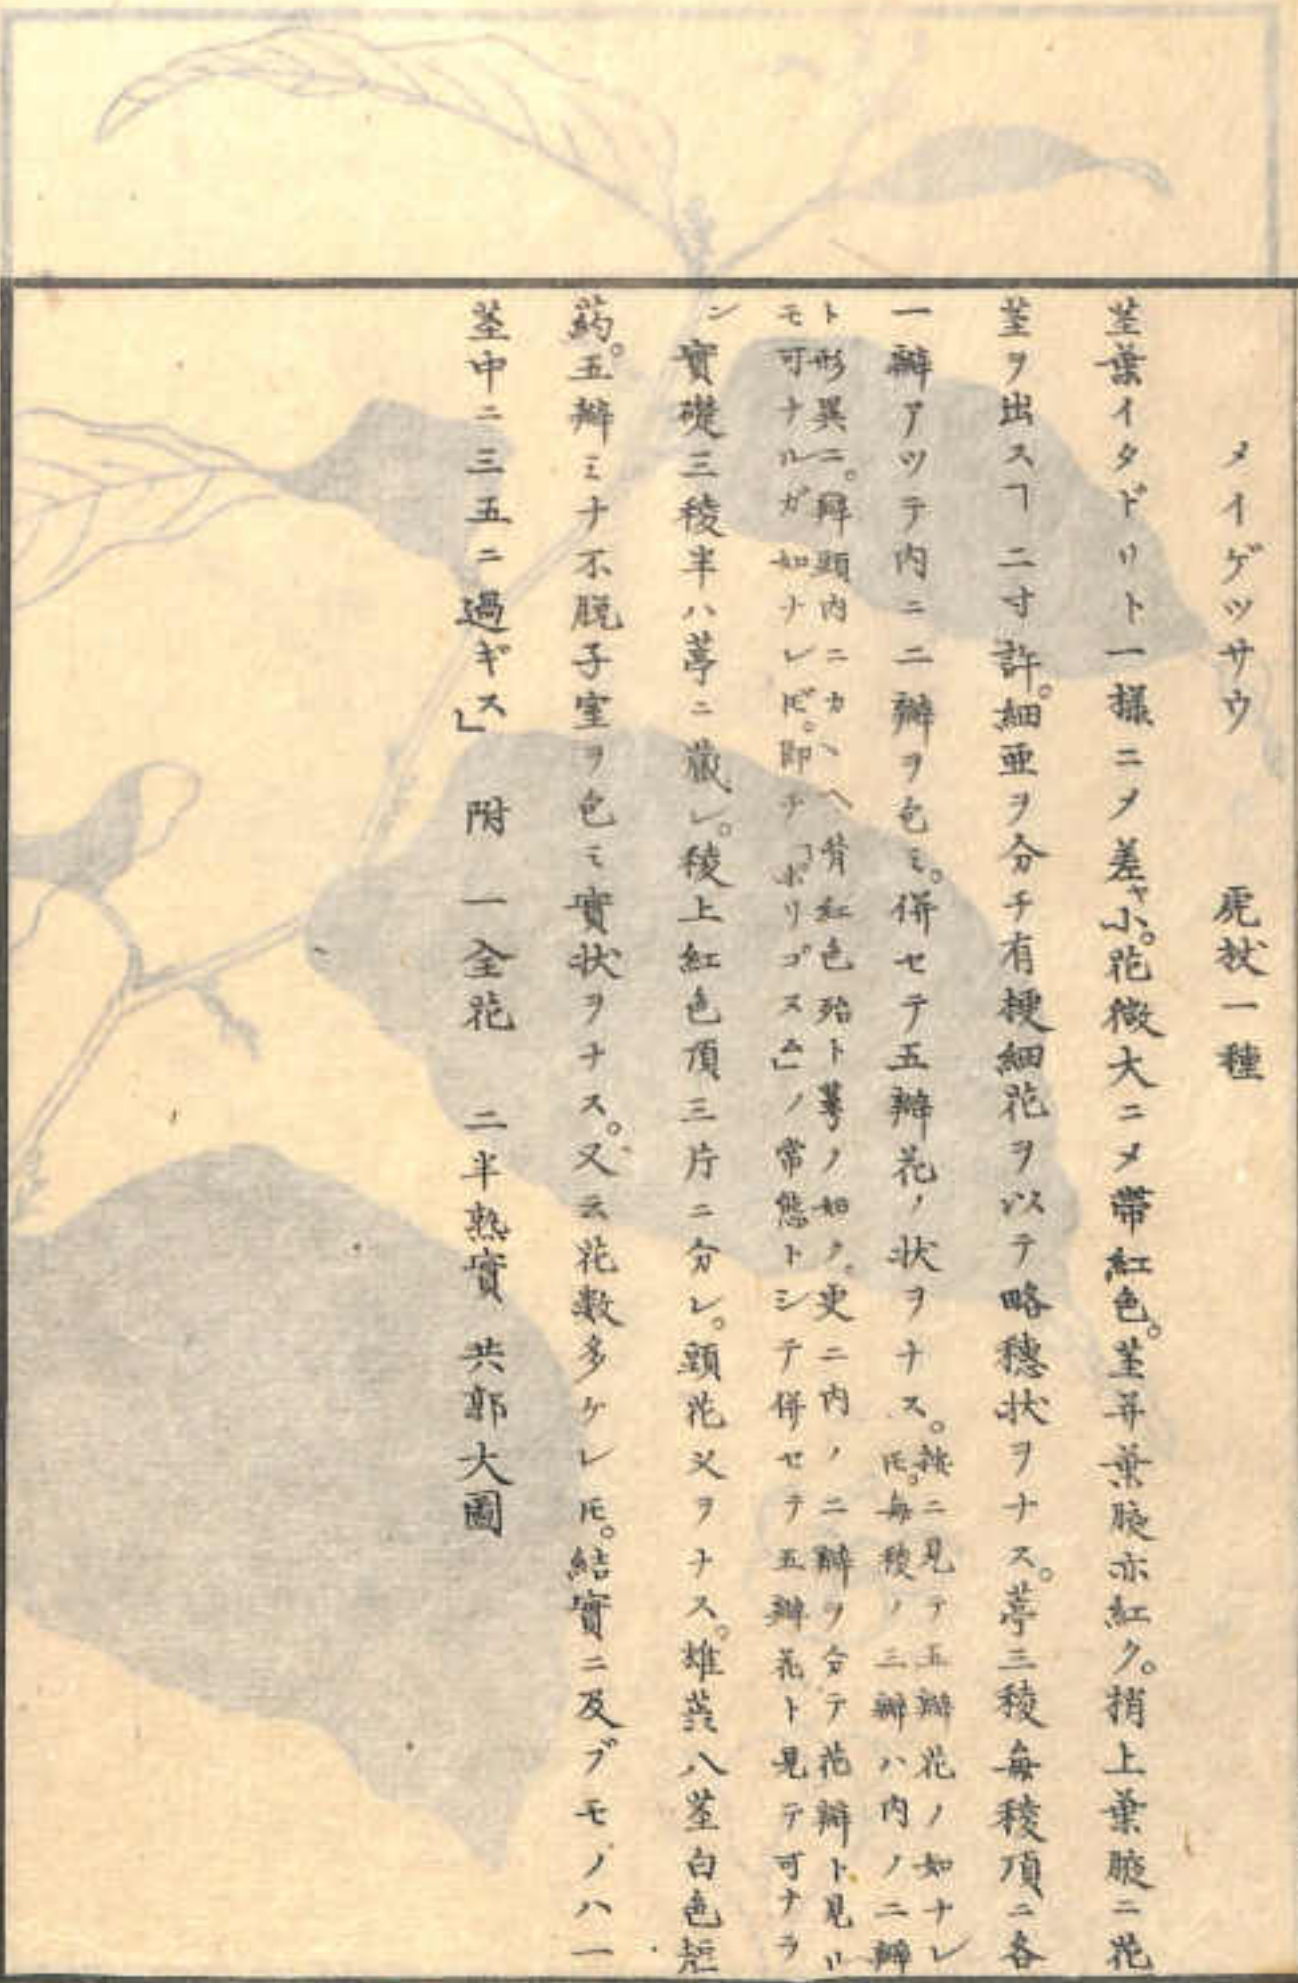 メイゲツサウ 虎杖一種
茎葉イタドリト一様ニメ差ャ小。花微大ニメ帯紅色。茎幷葉腋亦紅ク。梢上葉腋ニ花
茎ヲ出スヿ二寸許。細亜ヲ分チ有梗細花ヲ以テ略穂状ヲナス。萼三稜毎稜頂ニ各
一瓣アツテ内ニ二瓣ヲ包ミ。併セテ五瓣花ノ状ヲナス。
按ニ見テ五瓣花ノ如ナレ
𪜈。毎稜ノ三瓣ハ内ノ二瓣
ト形異ニ。瓣頭内ニカヽヘ背紅色殆ト萼ノ如ク。更ニ内ノ二瓣ヲ分テ花瓣ト見ル
モ可ナルガ如ナレ𪜈。即チ「ポリゴスム」ノ常態トシテ併セテ五瓣花ト見テ可ナラ
ン
實礎三稜半ハ萼ニ蔵レ。稜上紅色頂三片ニ分レ。頭花叉ヲナス。雄蕊八茎白色短
葯。五瓣ミナ不脱子室ヲ包ミ實状ヲナス。又云花数多ケレ𪜈。結實ニ及ブモノハ一
茎中ニ三五ニ過ギス」 附 一全花 二半熟實 共郭大圖